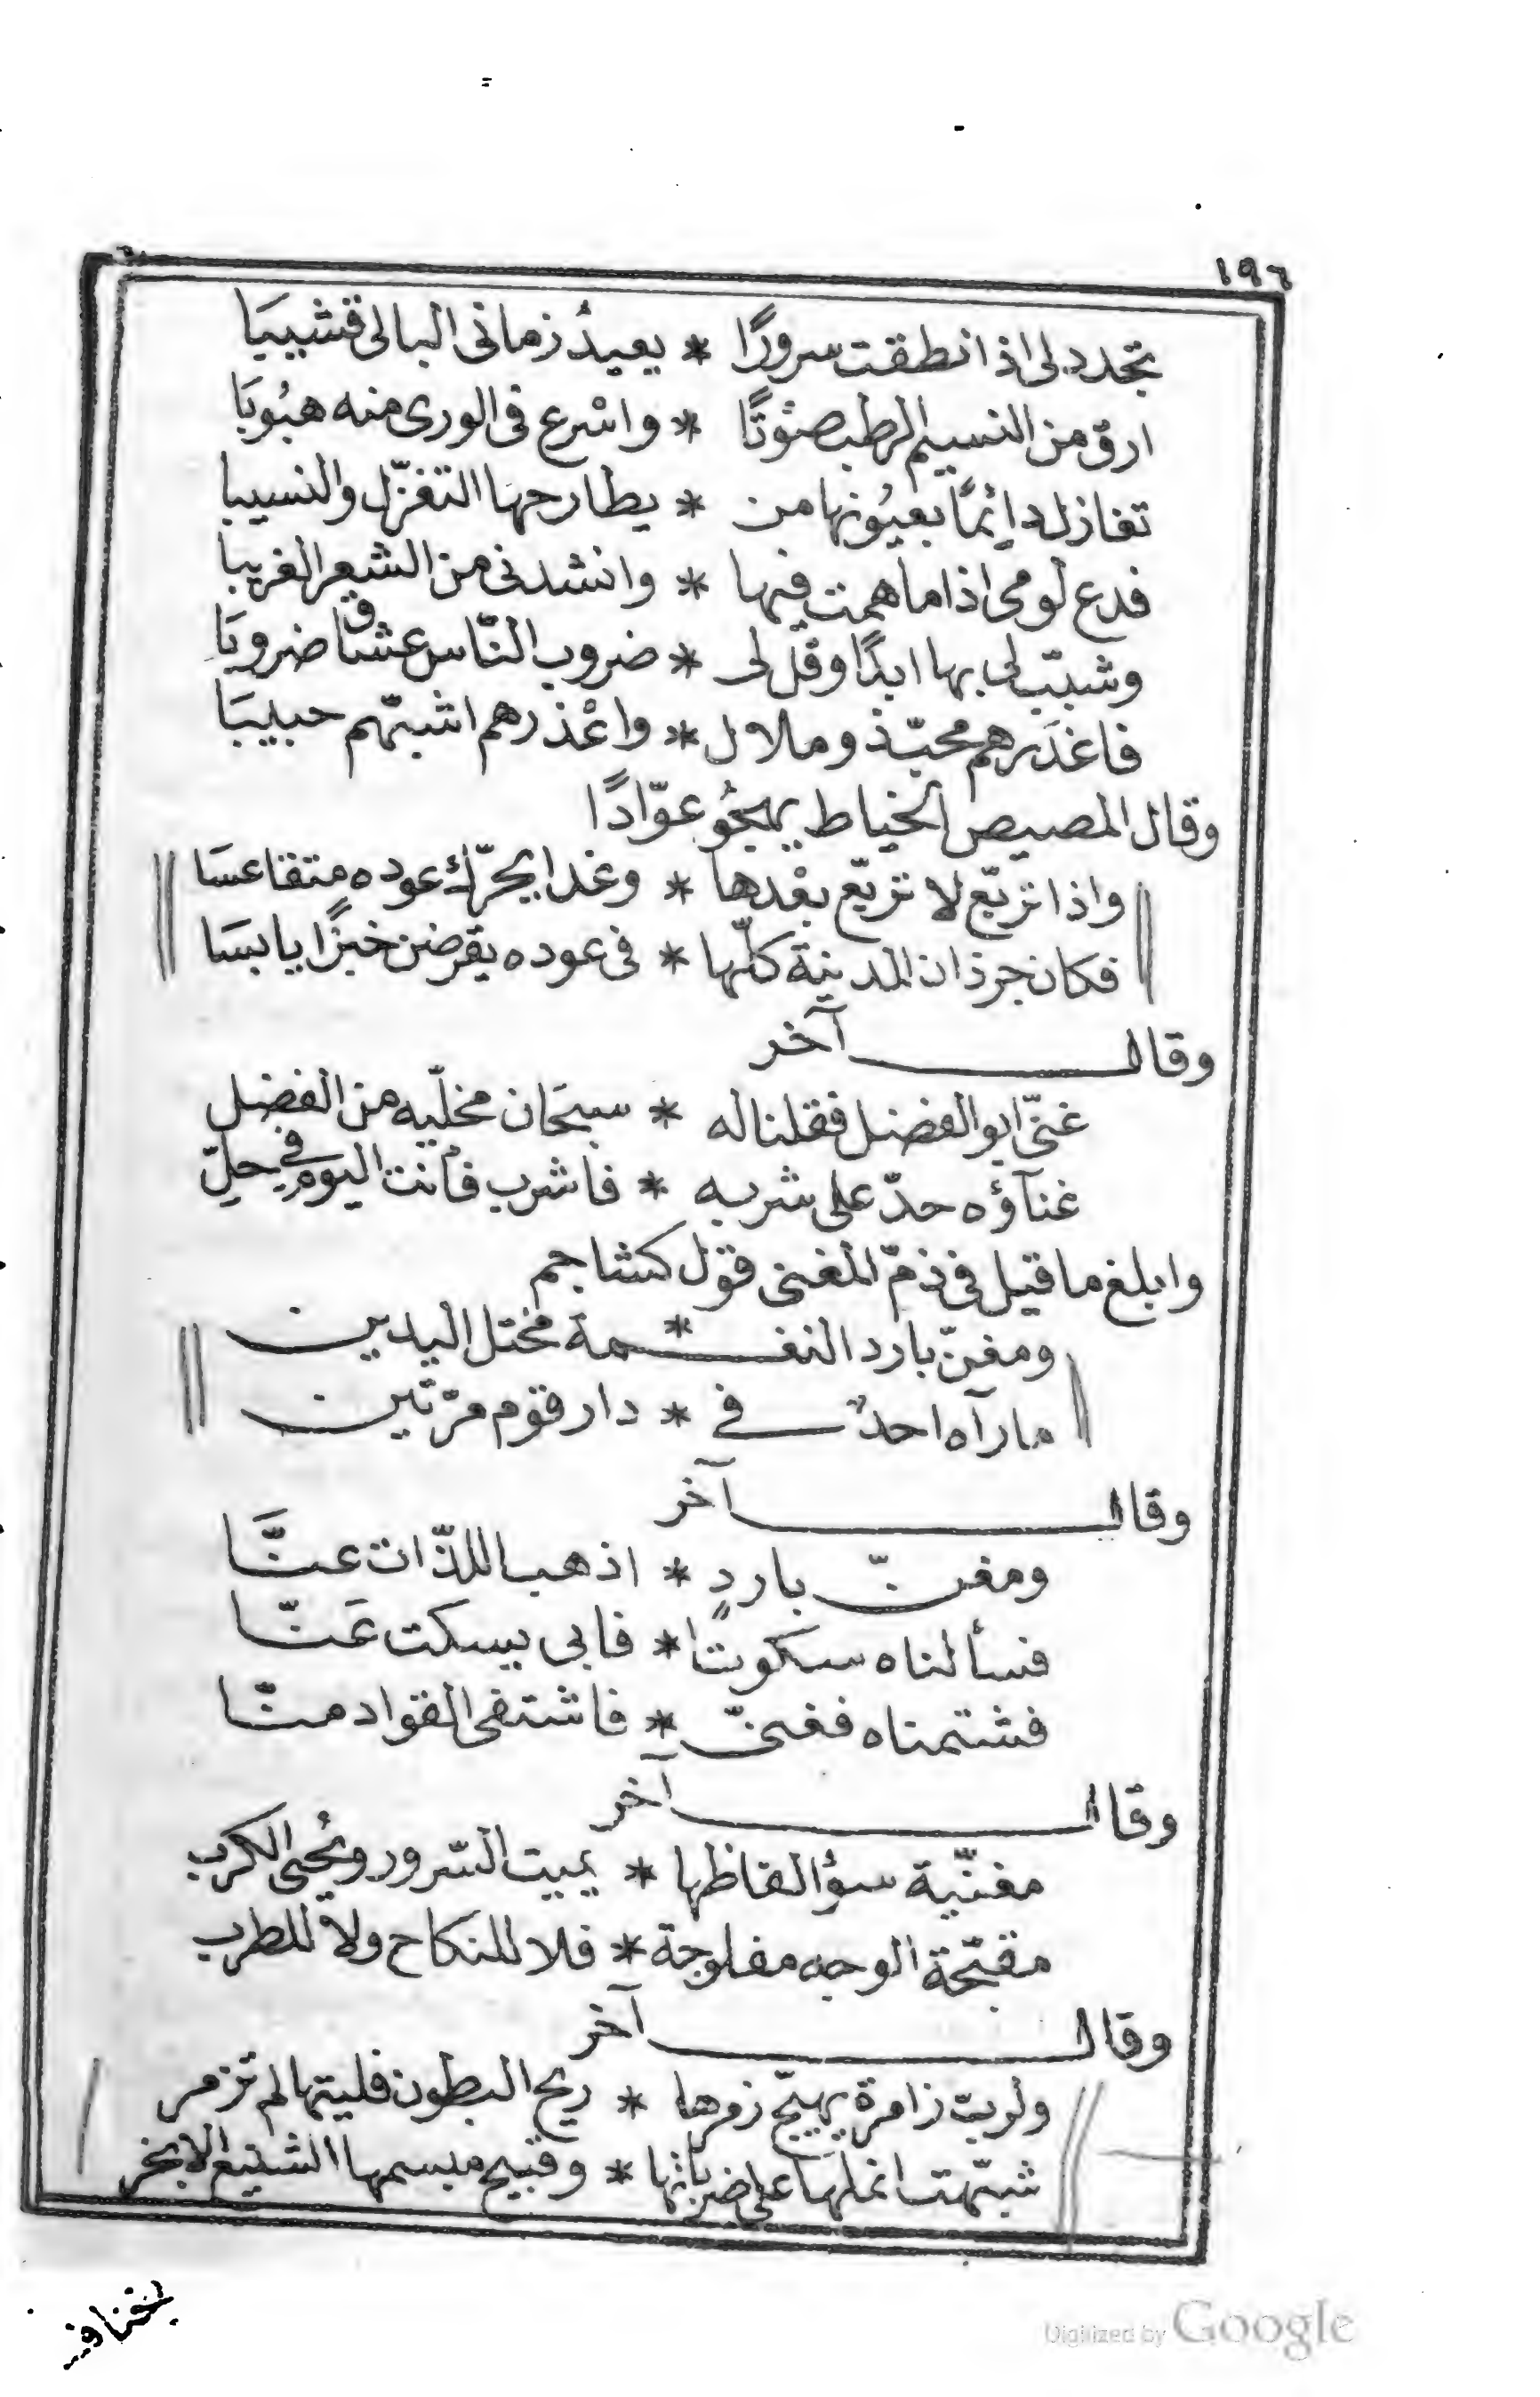 ١٩٦
تجدد لى اذا نطقت سرورًا * يعيدُ زمانى البالى قشيبَا
ارقّ من النسيم الرطب صَوْتًا * واسْرع فى الورى منه هبُوبَا
تغازل دائمًا بعيُونها من * يطارحها التغزّل والنسيبا
فدع لَومى اذا ما همت فيها * وانشدنى من الشعر الغريبا
وشبّب لى بها ابدًا وقل لى * ضروب النّاس عشاق ضروبَا
فاعْذرهم محبّ ذو ملال * واعْذرهم اشبّهم حبيبَا
وقال المصيصى الخياط يهجُو عوّادًا
واذا تربّع لا تربّع بعْدها * وغدا يحرّك عوده متقاعسَا
فكان جرذان المدينة كلّها * فى عوده يقرضن خبزًا يابسَا
وقال آخر
غنّى ابو الفضل فقلنا له * سبحَان مخلّيه من الفضل
غنآؤه حدّ على شربه * فاشرب فأنت اليوم فى حلِّ
وابلغ ما قيل فى ذمّ المغنى قوْل كشاجم
ومغنّ بارد النغـ * ـمة مختل اليدين
ما رآه احدٌ فى * دار قوم مرّتين
وقال آخر
ومغنّ باردٍ * اذهب اللذّات عنَّا
فسألناه سكوتًا * فابى يسكت عَنّا
فشتمناه فغنّى * فاشتفى القواد منّا
وقال آخر
مغنّية سوؤ الفاظها * يميت السّرور ويُحيى الكرب
مقبّحة الوجه مفلوجة * فلا للنكاح ولا للطرب
وقال آخر
ولربّ زامرة يهيّج زمرها * ريح البطون فليتها لم تزمر
شبّهت انملهَا على ضرباتها * وقبيح مبسمها الشنيع الابخر
بخنافس
Digitized by Google